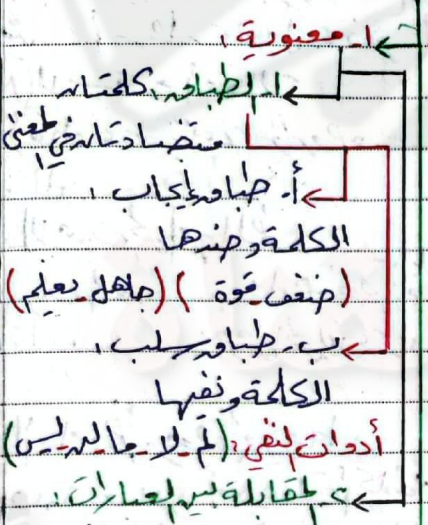 ١. معنوية:
١. الطباق: كلمتان
متضادتان في المعنى
أ. طباق إيجاب:
الكلمة وضدها
(ضعف - قوة) (جاهل - يعلم)
ب - طباق سلب:
الكلمة ونفيها
أدوات النفي: (لم - لا - ما - لن - ليس)
٢. المقابلة بين العبارات: